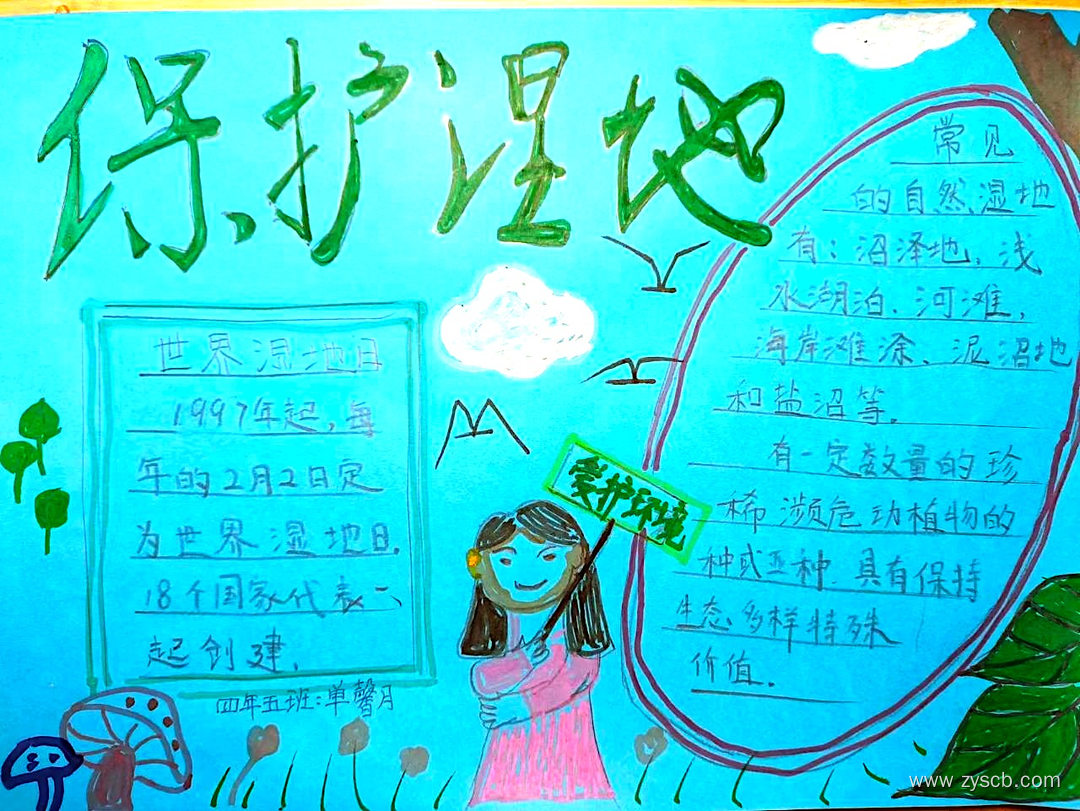 保护湿地
世界湿地日
1997年起,每
年的2月2日定
为世界湿地日.
18个国家代表一
起创建.
四年五班:单馨月
爱护环境
常见
的自然湿地
有:沼泽地、浅
水湖泊、河滩,
海岸滩涂、泥沼地
和盐沼等.
有一定数量的珍
稀濒危动植物的
种或亚种.具有保持
生态多样特殊
价值.
www.zyscb.com